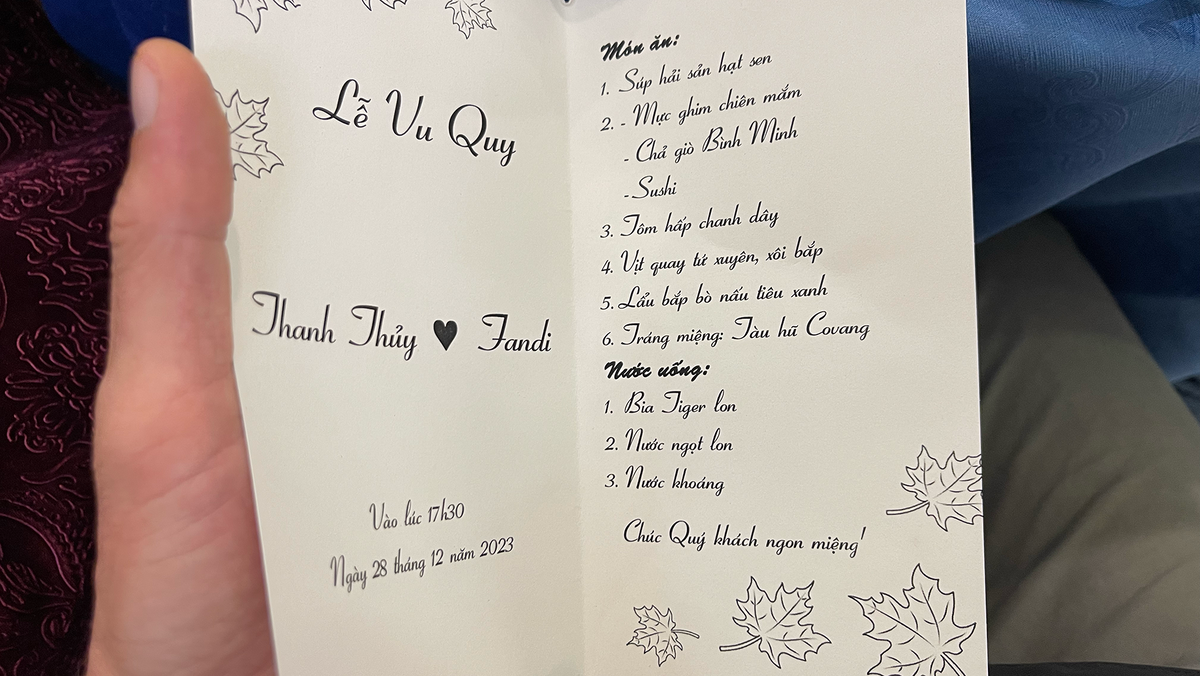 Lễ Vu Quy
Thanh Thủy ♥ Fandi
Vào lúc 17h30
Ngày 28 tháng 12 năm 2023
Món ăn:
1. Súp hải sản hạt sen
2. - Mực ghim chiên mắm
- Chả giò Bình Minh
- Sushi
3. Tôm hấp chanh dây
4. Vịt quay tứ xuyên, xôi bắp
5. Lẩu bắp bò nấu tiêu xanh
6. Tráng miệng: Tàu hũ Covang
Nước uống:
1. Bia Tiger lon
2. Nước ngọt lon
3. Nước khoáng
Chúc Quý khách ngon miệng!